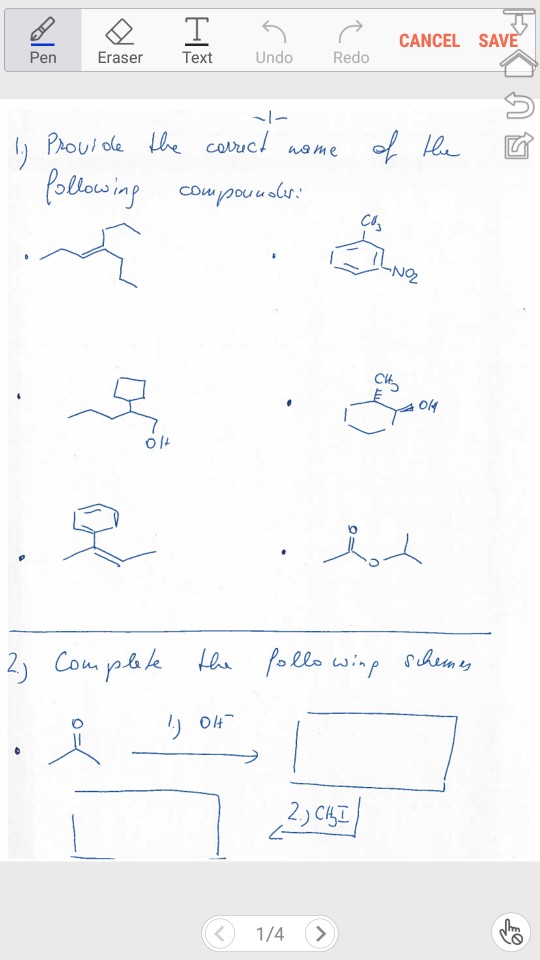 Pen
Eraser
Text
Undo
Redo
CANCEL
SAVE
-1-
1.) Provide the correct name of the
following compounds:
CH3
NO2
CH3
OH
OH
O
O
2.) Complete the following schemes
O
1.) OH-
2.) CH3I
1/4